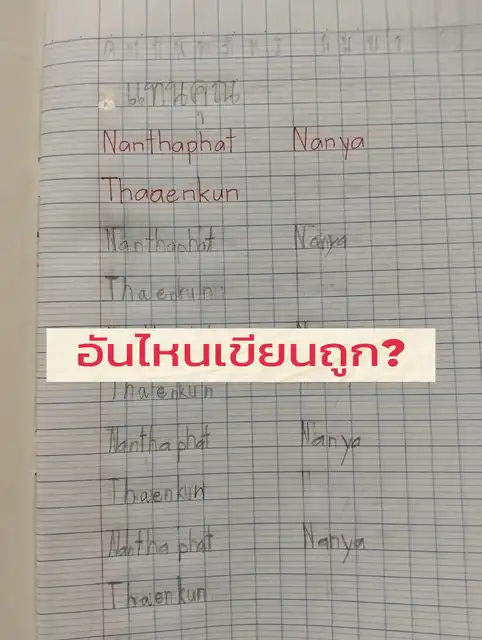 แทนคุณ
Nanthaphat Nanya
Thaaenkun
Nanthaphat Nanya
Thaenkun
อันไหนเขียนถูก?
Thaenkun
Nanthaphat Nanya
Thaenkun
Nanthaphat Nanya
Thaenkun